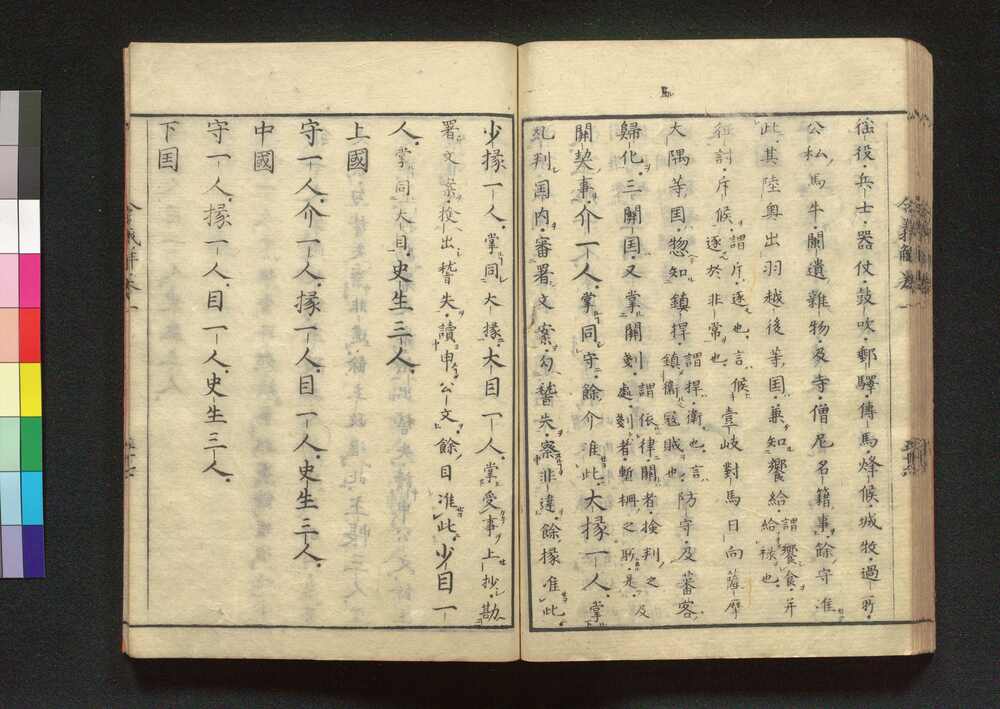 徭役・兵士・器仗・鼓吹・郵驛・傳馬・烽候・城牧・過所・
公私馬牛・闌遺雜物・及寺・僧尼名籍事・餘守准
此・其陸奥出羽越後等国・兼知饗給・謂饗食・并給祿也・
征討・斥候・謂斥・逐也・言候逐於非常也・壹岐對馬日向薩摩
大隅等国・惣知鎮捍・謂捍・衛也・言鎮衛寇賊也・防守・及蕃客・
歸化・三關国・又掌關剗・謂依律・關者・検判之處・剗者・塹柵之所・是・及
關契事・介一人・掌同守・餘介准此・大掾一人・掌
糺判国内・審署文案・勾稽失・察非違・餘掾准此・
少掾一人・掌同大掾・大目一人・掌受事・上抄・勘
署文案・檢出稽失・讀申公文・餘目准此・少目一
人・掌同大目・史生三人・
上國
守一人・介一人・掾一人・目一人・史生三人・
中國
守一人・掾一人・目一人・史生三人・
下国
令義解巻一
令義解巻一